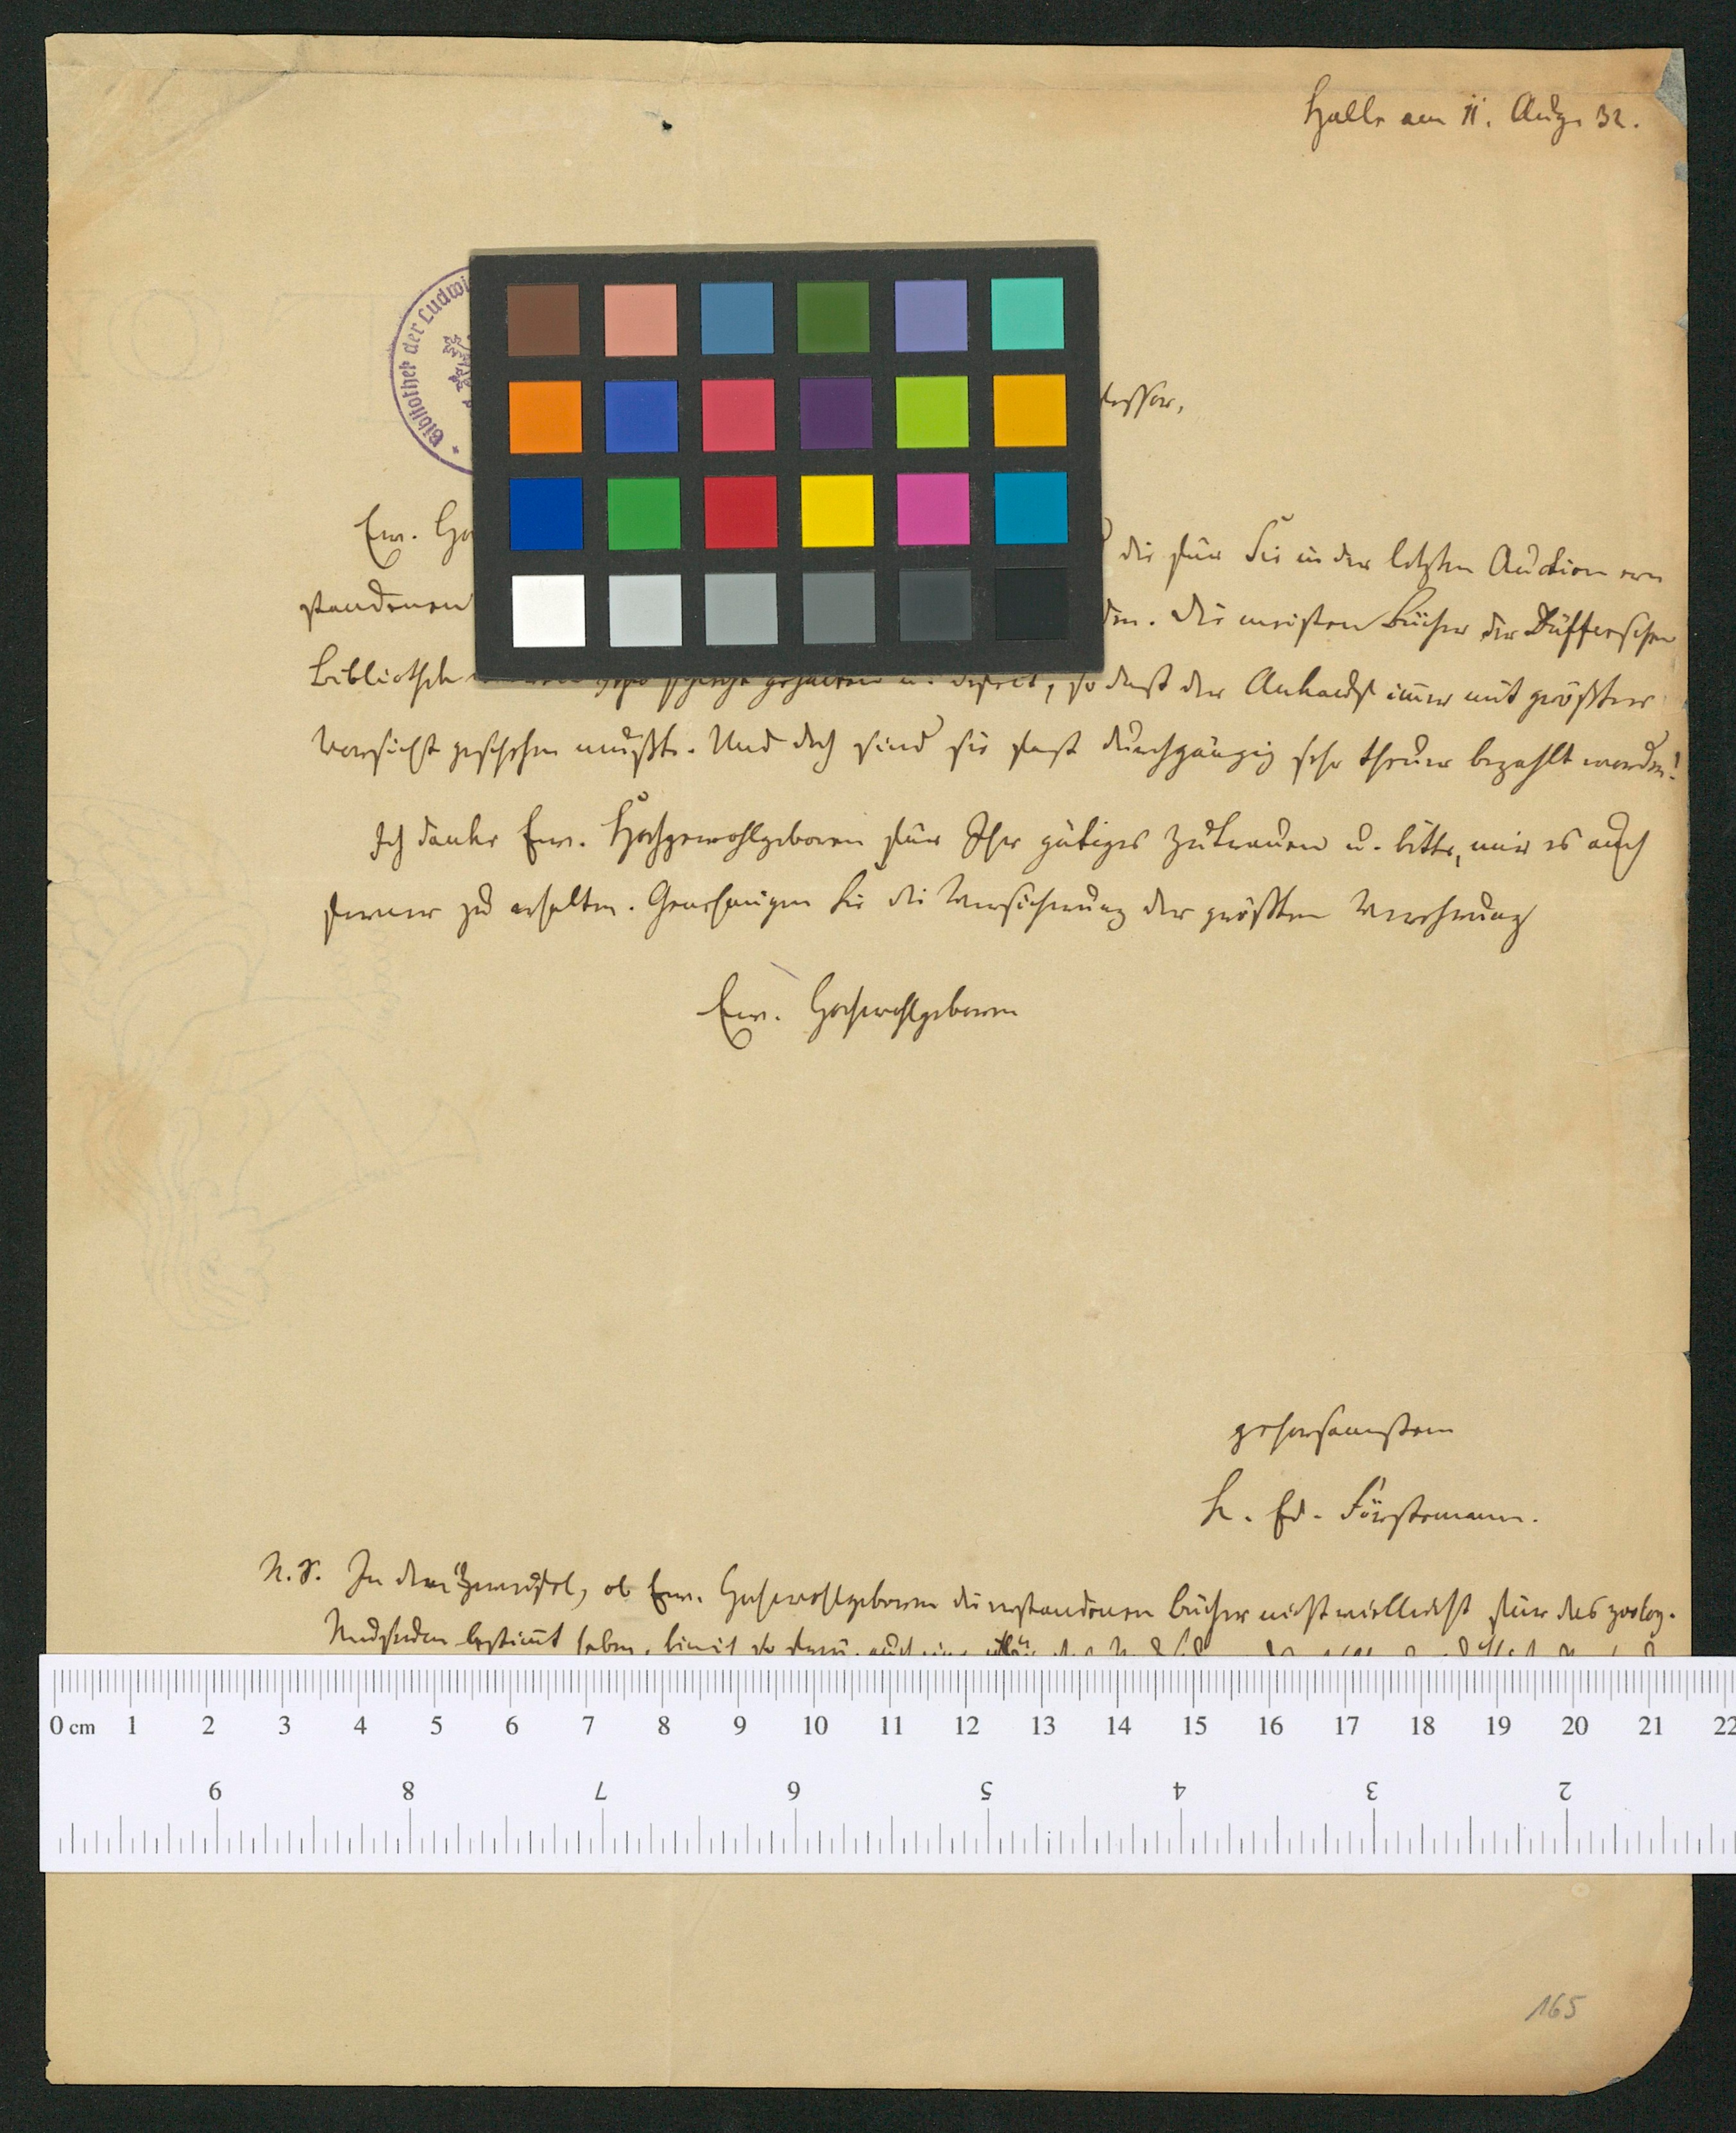 Halle am 11. Aug. 32.
Bibliothek der Ludwi
fessor,
Ew. Ho
die für Sie in der letzten Auction er
standenen
den. Die meisten Bücher der Düfferschen
Bibliothek schlecht gehalten u. defect, so daß der Ankauf immer mit größter
Vorsicht geschehen mußte. Und doch sind sie fast durchgängig sehr theuer bezahlt worden!
Ich danke Ew. Hochgewohlgeboren für Ihr gütiges Zutrauen u. bitte, mir es auch
ferner zu erhalten. Genehmigen Sie die Versicherung der größten Verehrung
Ew. Hochwohlgeboren
gehorsamstem
Ed. Förstemann.
N.S. In dem Zweifel, ob Ew. Hochwohlgeboren die erstandenen Bücher nicht vielleicht für das zoolog.
Museum bestimmt haben, bin ich so
0 cm 1 2 3 4 5 6 7 8 9 10 11 12 13 14 15 16 17 18 19 20 21 22
9 8 7 6 5 4 3 2
165